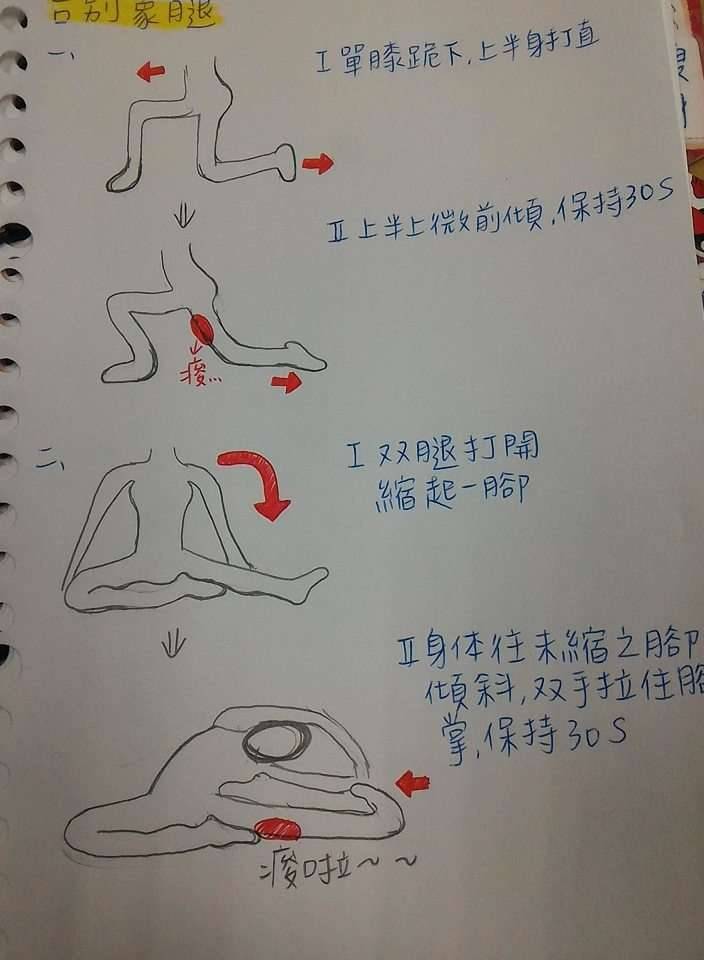 告別象腿
一、
I 單膝跪下,上半身打直
II 上半上微前傾,保持30S
痠...
二、
I 双腿打開
縮起一腳
II 身体往未縮之腳
傾斜,双手拉住腳
掌,保持30S
痠啦~~